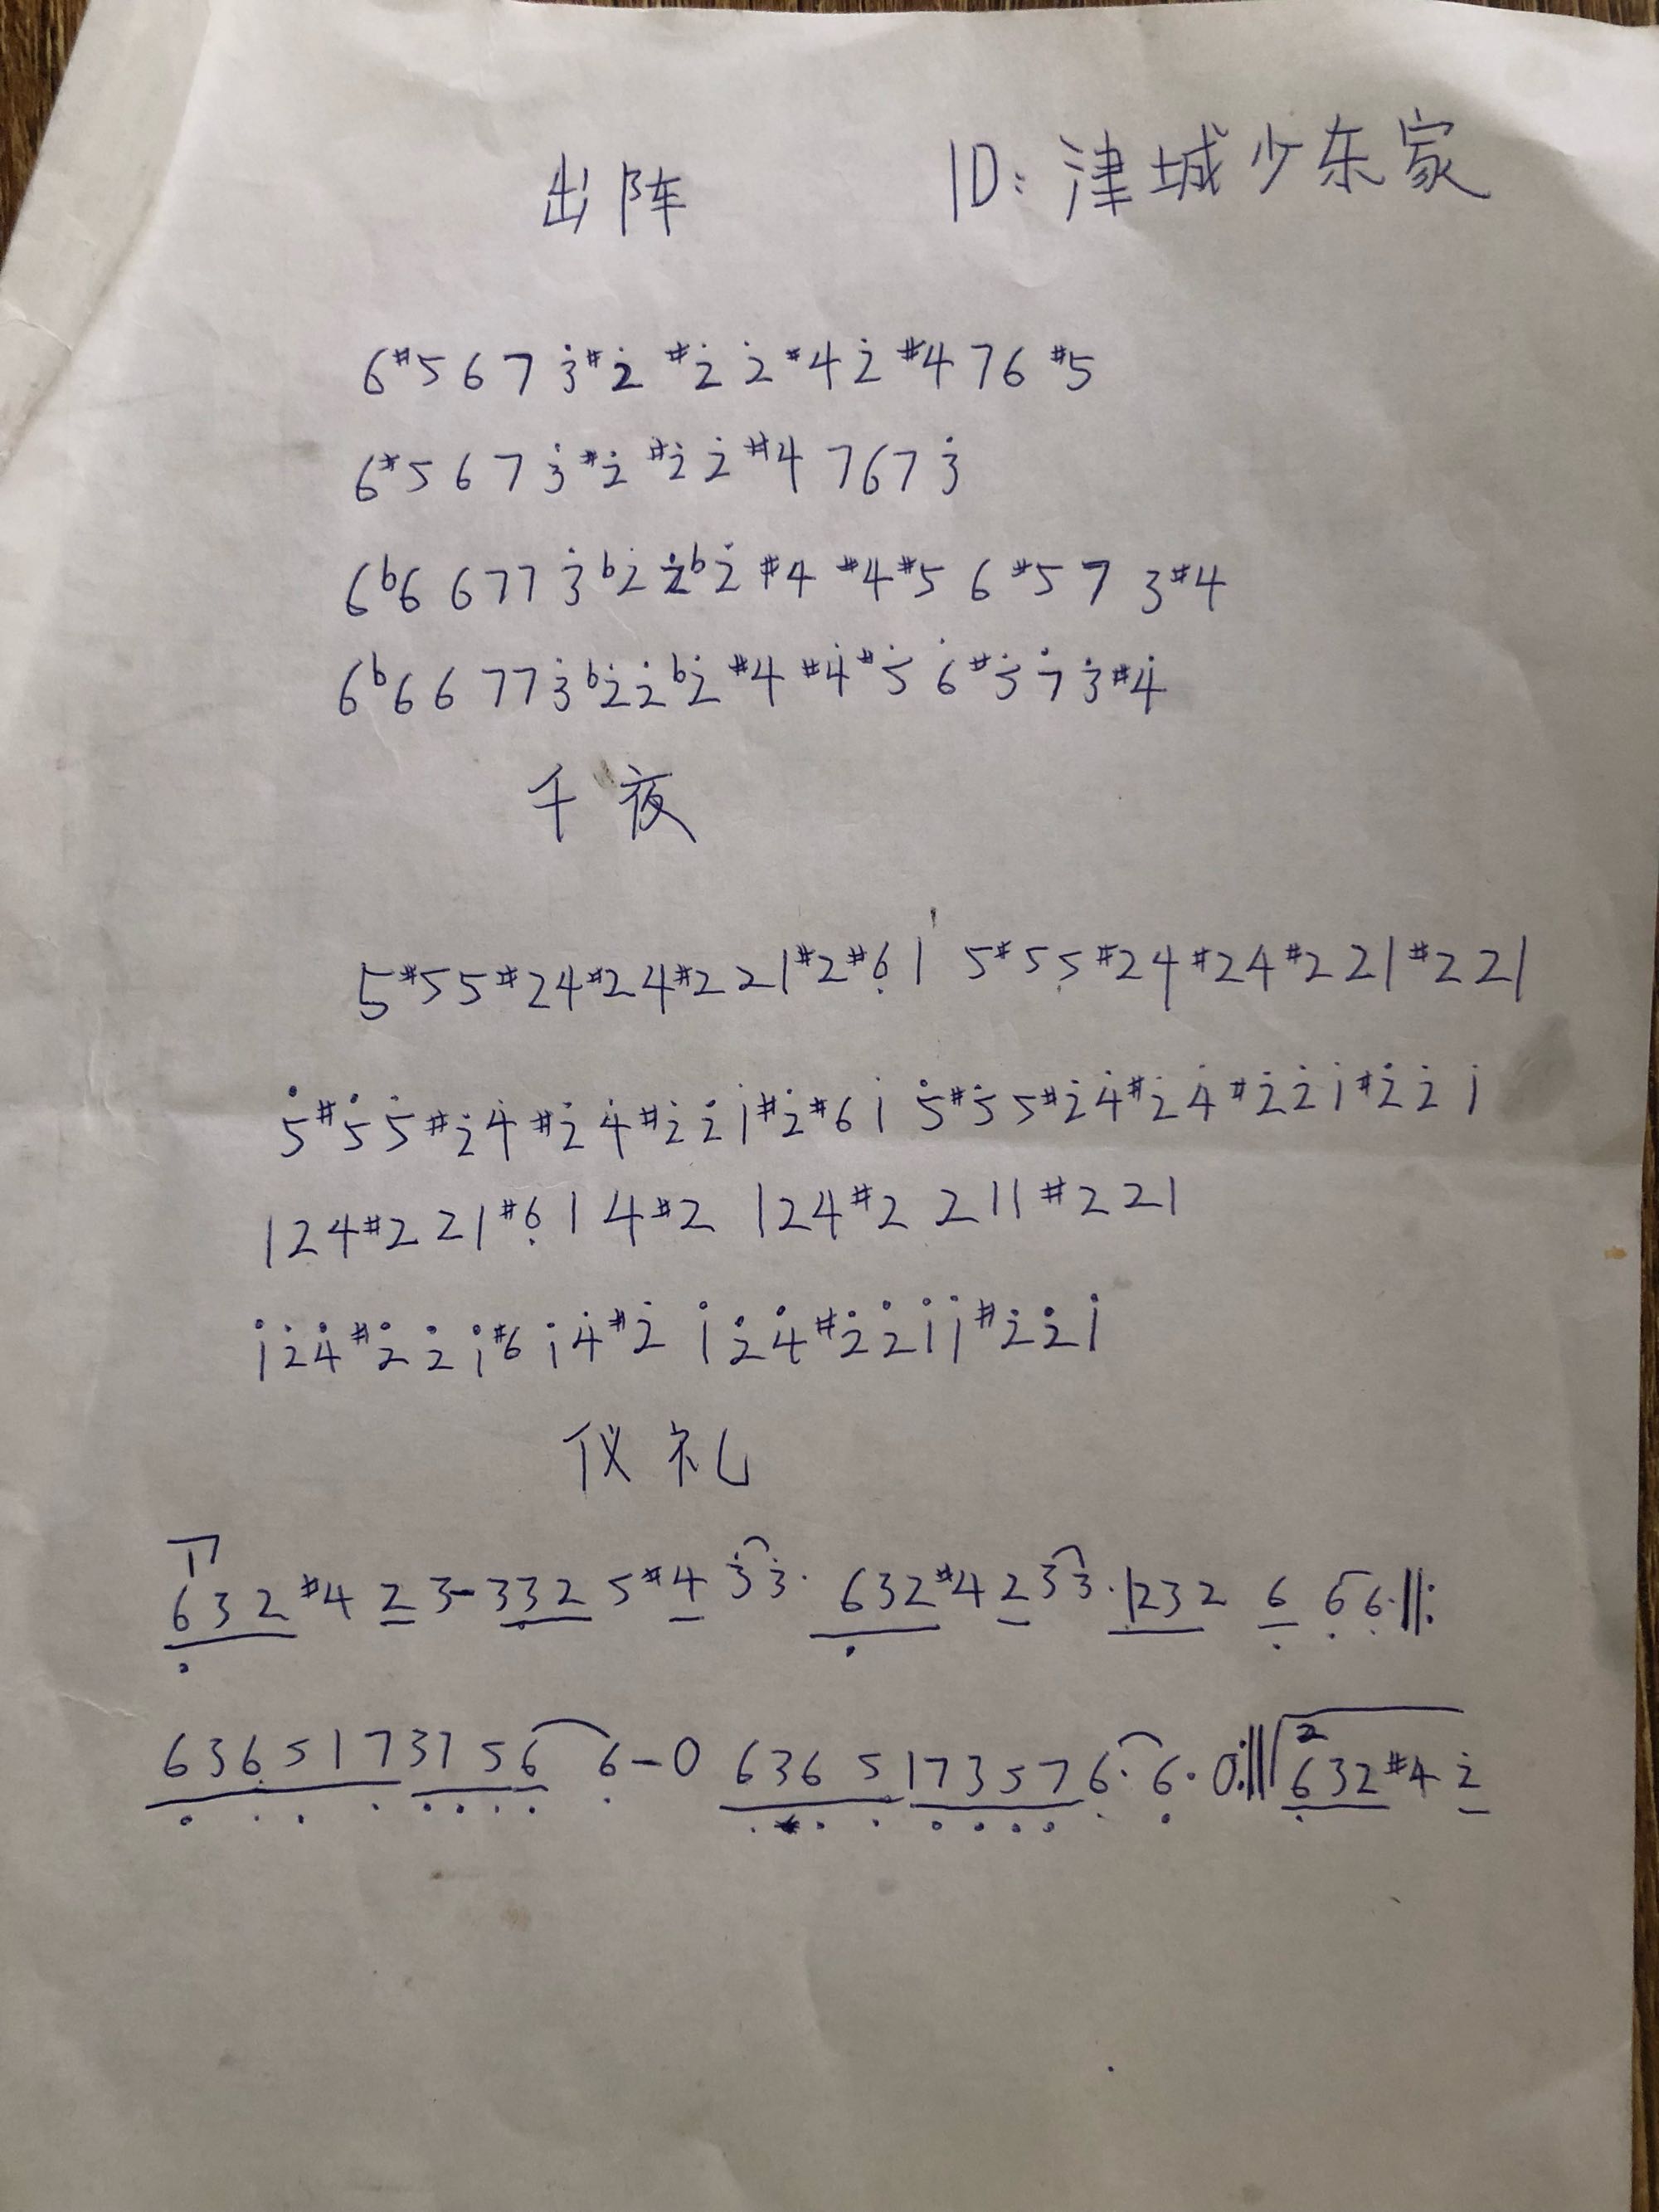 出阵 ID：津城少东家
6 #5 6 7 3̇ #2̇ #2̇ 2̇ #4 2̇ #4 7 6 #5
6 #5 6 7 3̇ #2̇ #2̇ 2̇ #4 7 6 7 3̇
6 b6 6 7 7 3̇ b2̇ 2̇ b2̇ #4 #4 #5 6 #5 7 3 #4
6 b6 6 7 7 3̇ b2̇ 2̇ b2̇ #4 #4̇ #5̇ 6̇ #5̇ 7̇ 3̇ #4̇
千夜
5 #5 5 #2 4 #2 4 #2 2 1 #2 #6̣ 1 5 #5 5 #2 4 #2 4 #2 2 1 #2 2 1
5̇ #5̇ 5̇ #2̇ 4̇ #2̇ 4̇ #2̇ 2̇ 1̇ #2̇ #6 1̇ 5̇ #5̇ 5 #2̇ 4̇ #2̇ 4̇ #2̇ 2̇ 1̇ #2̇ 2̇ 1̇
1 2 4 #2 2 1 #6̣ 1 4 #2 1 2 4 #2 2 1 1 #2 2 1
1̇ 2̇ 4̇ #2̇ 2̇ 1̇ #6 1̇ 4̇ #2̇ 1̇ 2̇ 4̇ #2̇ 2̇ 1̇ 1̇ #2̇ 2̇ 1̇
仪礼
6̣ 3 2 #4 2 3 - 3 3 2 5 #4 3̇ 3̇· 6̣ 3 2 #4 2 3 3· 1 2 3 2 6̣ 6̣ 6̣· ‖:
6̣ 3 6̣ 5̣ 1 7̣ 3̣ 7̣ 5̣ 6̣ 6̣ - 0 6̣ 3 6̣ 5̣ 1 7̣ 3̣ 5̣ 7̣ 6̣· 6̣· 0 :‖ 2 6̣ 3 2 #4 2̇